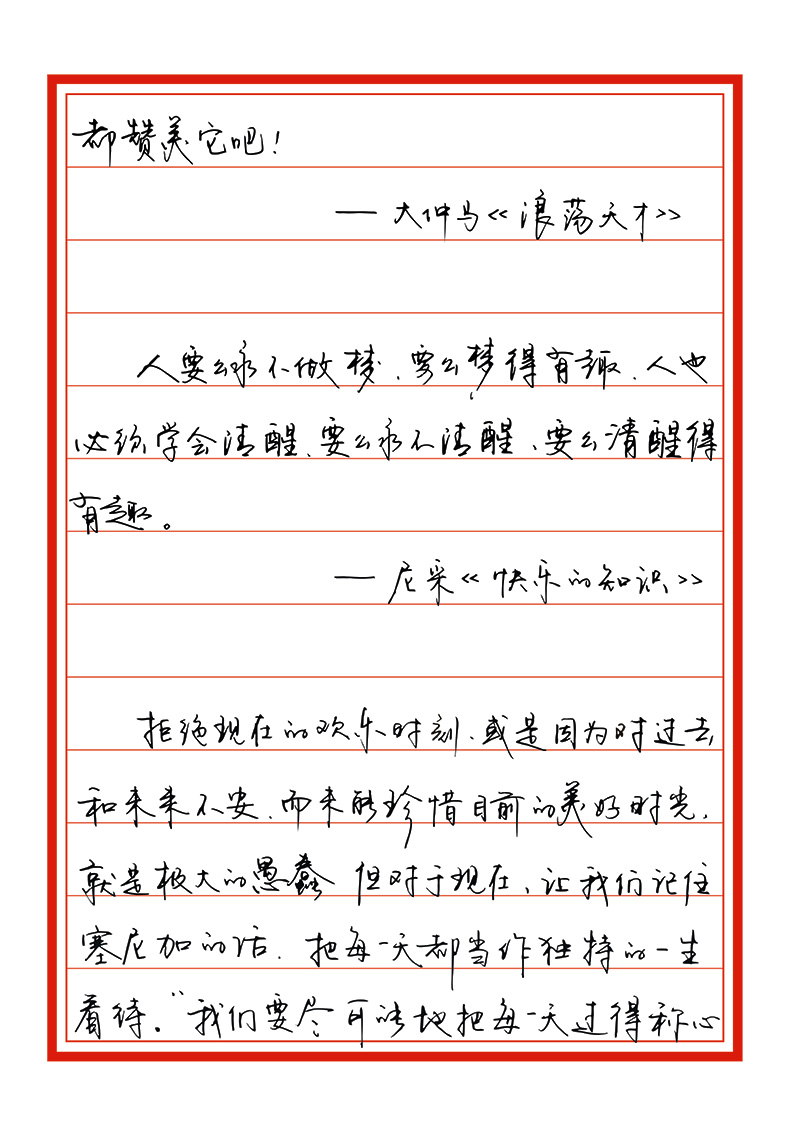 都赞美它吧!
— 大仲马《浪荡天才》
人要么永不做梦、要么梦得有趣、人也
必须学会清醒、要么永不清醒、要么清醒得
有趣。
— 尼采《快乐的知识》
拒绝现在的欢乐时刻、或是因为对过去
和未来不安、而未能珍惜目前的美好时光,
就是极大的愚蠢 但对于现在、让我们记住
塞尼加的话. 把每一天都当作独特的一生
看待。“我们要尽可能地把每一天过得称心